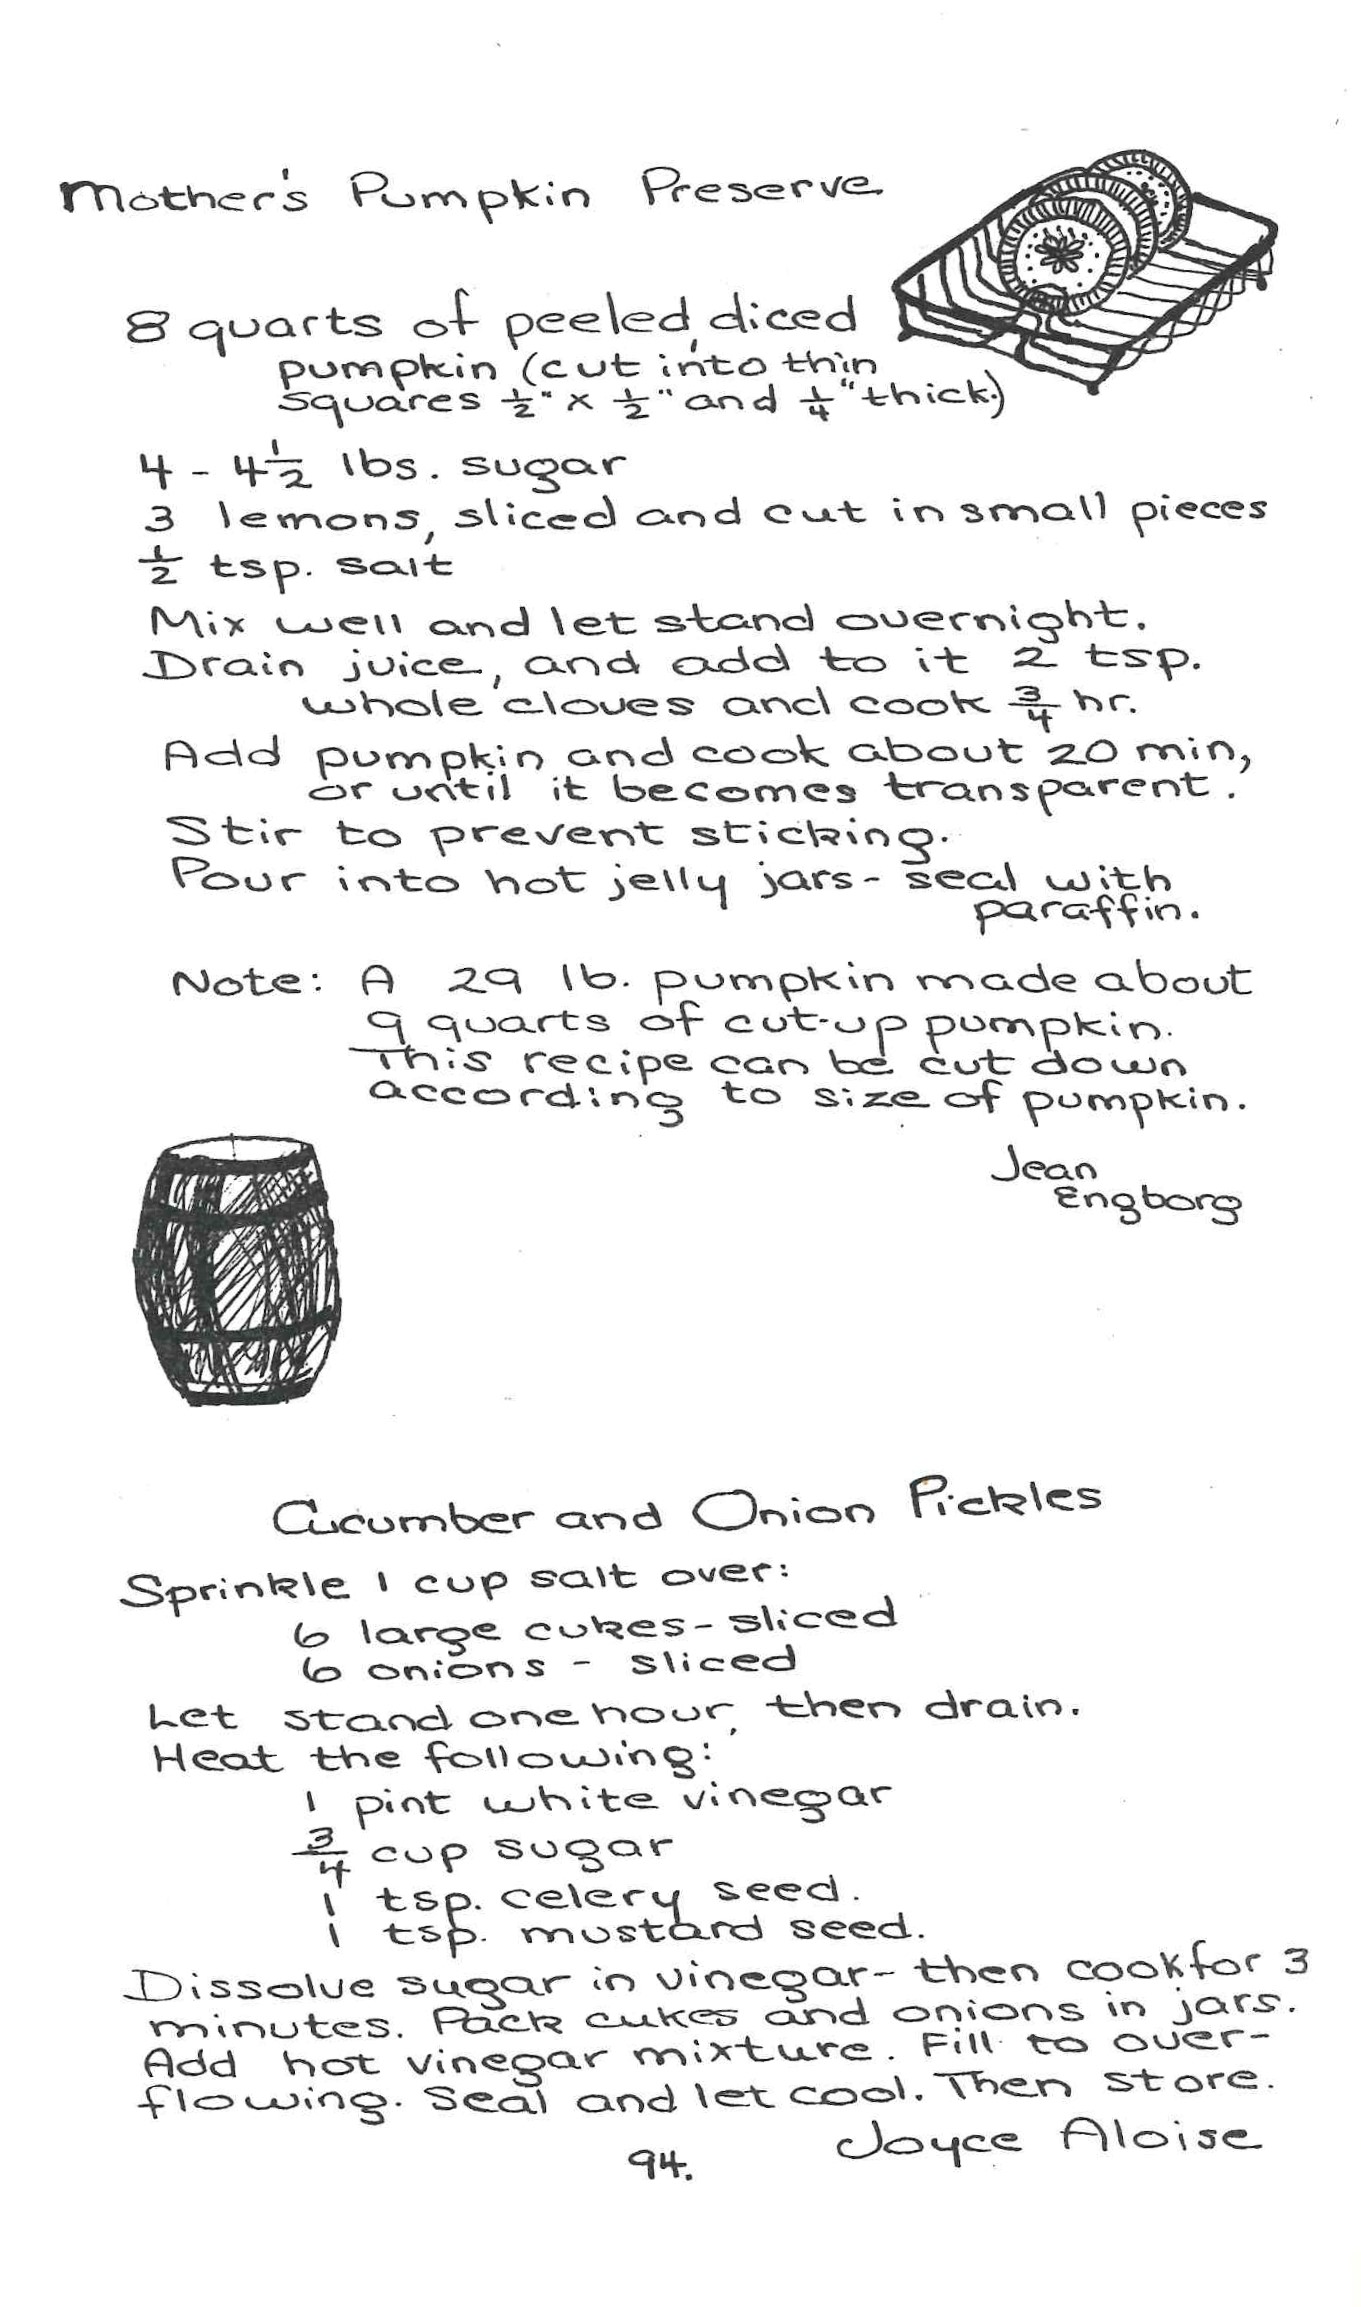 Mother's Pumpkin Preserve
8 quarts of peeled, diced
pumpkin (cut into thin
squares ½" x ½" and ¼" thick.)
4 - 4½ lbs. sugar
3 lemons, sliced and cut in small pieces
½ tsp. salt
Mix well and let stand overnight.
Drain juice, and add to it 2 tsp.
whole cloves and cook ¾ hr.
Add pumpkin and cook about 20 min,
or until it becomes transparent.
Stir to prevent sticking.
Pour into hot jelly jars - seal with
paraffin.
Note: A 29 lb. pumpkin made about
9 quarts of cut-up pumpkin.
This recipe can be cut down
according to size of pumpkin.
Jean
Engborg
Cucumber and Onion Pickles
Sprinkle 1 cup salt over:
6 large cukes - sliced
6 onions - sliced
Let stand one hour, then drain.
Heat the following:
1 pint white vinegar
¾ cup sugar
1 tsp. celery seed.
1 tsp. mustard seed.
Dissolve sugar in vinegar - then cook for 3
minutes. Pack cukes and onions in jars.
Add hot vinegar mixture. Fill to over-
flowing. Seal and let cool. Then store.
Joyce Aloise
94.